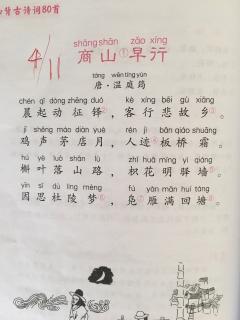 必背古诗词80首
4/11
shāng shān zǎo xíng
商山①早行
táng wēn tíng yún
唐·温庭筠
chén qǐ dòng zhēng duó kè xíng bēi gù xiāng
晨起动征铎，客行悲故乡。
jī shēng máo diàn yuè rén jì bǎn qiáo shuāng
鸡声茅店月，人迹板桥霜。
hú yè luò shān lù zhǐ huā míng yì qiáng
槲叶落山路，枳花明驿墙。
yīn sī dù líng mèng fú yàn mǎn huí táng
因思杜陵梦，凫雁满回塘。